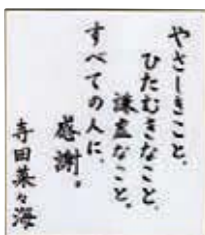 やさしきこと、
ひたむきなこと、
謙虚なこと。
すべての人に、
感謝。
寺田菜々海